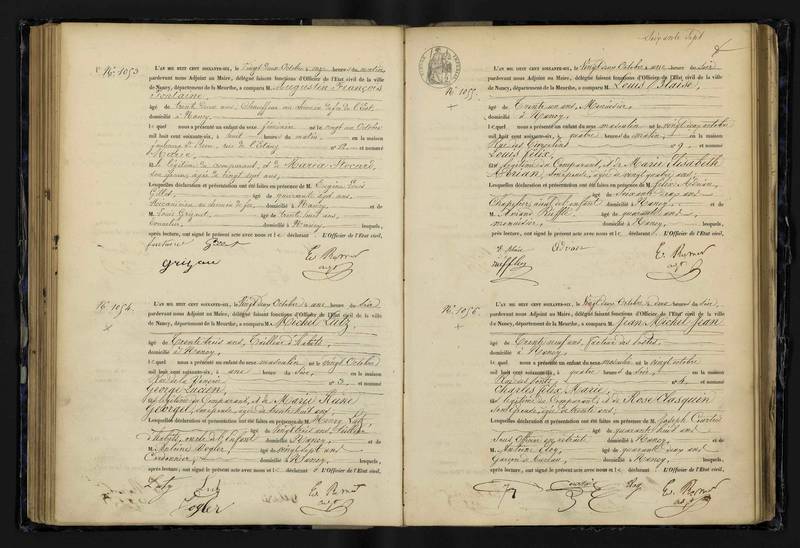 N° 1053
L'AN MIL HUIT CENT SOIXANTE-SIX, le Vingt deux Octobre à onze heures du matin
pardevant nous Adjoint au Maire, délégué faisant fonctions d'Officier de l'Etat civil de la ville
de Nancy, département de la Meurthe, a comparu M. Augustin François
Fontaine,
âgé de trente deux ans, Chauffeur au chemin de fer de l'Est,
domicilié à Nancy
lequel nous a présenté un enfant du sexe féminin né le vingt un Octobre
mil huit cent soixante-six, à huit heures du matin, en la maison
faubourg St Pierre, rue de l'Etang n° et nommé
Marie,
fille légitime du comparant, et de Maria
son épouse, âgée de vingt sept ans,
Lesquelles déclaration et présentation ont été faites en présence de M. Eugène Louis
Gillot, âgé de quarante sept ans,
Mécanicien au chemin de fer, domicilié à Nancy et de
M. Louis âgé de trente huit ans,
domicilié à Nancy lesquels,
après lecture, ont signé le présent acte avec nous et le déclarant. L'Officier de l'Etat civil,
fontaine
N° 1054
L'AN MIL HUIT CENT SOIXANTE-SIX, le Vingt deux Octobre à une heure du soir
pardevant nous Adjoint au Maire, délégué faisant fonctions d'Officier de l'Etat civil de la ville
de Nancy, département de la Meurthe, a comparu M. Michel Lutz,
âgé de Trente trois ans, Tailleur d'habits,
domicilié à Nancy,
lequel nous a présenté un enfant du sexe masculin né le vingt Octobre
mil huit cent soixante-six, à une heure du soir, en la maison
Rue de la n° 3 et nommé
George Lucien
fils légitime du Comparant, et de Marie
Georgel, son épouse, âgée de trente huit ans,
Lesquelles déclaration et présentation ont été faites en présence de M. Henry Lutz,
âgé de vingt trois ans, Tailleur
d'habits, oncle de l'enfant domicilié à Nancy, et de
M. Antoine Vogler, âgé de vingt sept ans
Cordonnier, domicilié à Nancy, lesquels,
après lecture, ont signé le présent acte avec nous et le déclarant. L'Officier de l'Etat civil,
Lutz Lutz
Vogler
Soixante Sept
N° 1055
L'AN MIL HUIT CENT SOIXANTE-SIX, le Vingt deux Octobre à une heure du soir
pardevant nous Adjoint au Maire, délégué faisant fonctions d'Officier de l'Etat civil de la ville
de Nancy, département de la Meurthe, a comparu M. Louis Blaise,
âgé de Trente un ans, Menuisier,
domicilié à Nancy,
lequel nous a présenté un enfant du sexe masculin né le vingt deux octobre
mil huit cent soixante-six, à quatre heures du matin, en la maison
Rue des n° 9 et nommé
Louis Félix,
fils légitime du Comparant, et de Marie Elisabeth
Adrian, son épouse, âgée de vingt quatre ans,
Lesquelles déclaration et présentation ont été faites en présence de M. Adrian,
âgé de soixante ans
Chapelier, aïeul de l'enfant domicilié à Nancy, et de
M. âgé de quarante ans
menuisier, domicilié à Nancy, lesquels,
après lecture, ont signé le présent acte avec nous et le déclarant. L'Officier de l'Etat civil,
Blaise Adrian
N° 1056
L'AN MIL HUIT CENT SOIXANTE-SIX, le Vingt deux Octobre à deux heures du soir,
pardevant nous Adjoint au Maire, délégué faisant fonctions d'Officier de l'Etat civil de la ville
de Nancy, département de la Meurthe, a comparu M. Jean Michel Jean
âgé de Trente neuf ans, Facteur des Postes,
domicilié à Nancy,
lequel nous a présenté un enfant du sexe masculin né le vingt octobre
mil huit cent soixante-six, à quatre heures du soir, en la maison
Rue des Ponts n° 4 et nommé
Charles Félix Marie,
fils légitime du Comparant, et de Rose Clasquin
son épouse, âgée de trente ans,
Lesquelles déclaration et présentation ont été faites en présence de M. Joseph
âgé de quarante huit ans
Sous Officier en retraite domicilié à Nancy, et de
M. Antoine Eloy, âgé de quarante deux ans
Garçon de bureau, domicilié à Nancy, lesquels,
après lecture, ont signé le présent acte avec nous et le déclarant. L'Officier de l'Etat civil,
Eloy